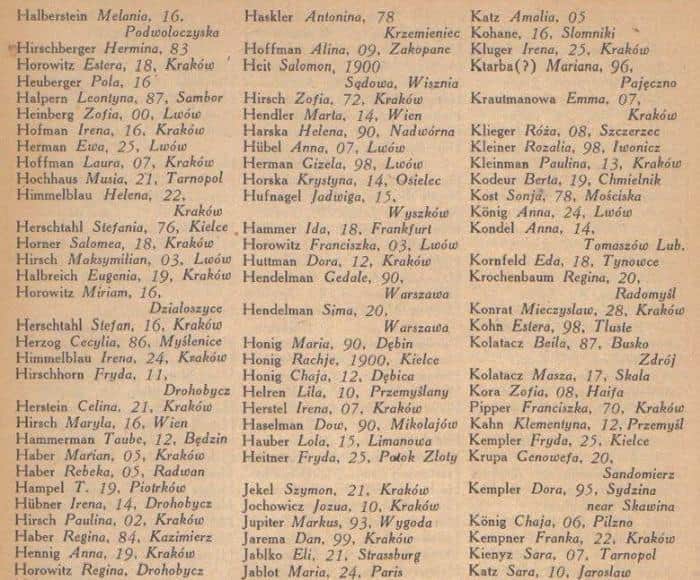 Halberstein Melania, 16,
Podwoloczyska
Hirschberger Hermina, 83
Horowitz Estera, 18, Kraków
Heuberger Pola, 16
Halpern Leontyna, 87, Sambor
Heinberg Zofia, 00, Lwów
Hofman Irena, 16, Kraków
Herman Ewa, 25, Lwów
Hoffman Laura, 07, Kraków
Hochhaus Musia, 21, Tarnopol
Himmelblau Helena, 22,
Kraków
Herschtahl Stefania, 76, Kielce
Horner Salomea, 18, Kraków
Hirsch Maksymilian, 03, Lwów
Halbreich Eugenia, 19, Kraków
Horowitz Miriam, 16,
Dzialoszyce
Herschtahl Stefan, 16, Kraków
Herzog Cecylia, 86, Myślenice
Himmelblau Irena, 24, Kraków
Hirschhorn Fryda, 11,
Drohobycz
Herstein Celina, 21, Kraków
Hirsch Maryla, 16, Wien
Hammerman Taube, 12, Będzin
Haber Marian, 05, Kraków
Haber Rebeka, 05, Radwan
Hampel T. 19, Piotrków
Hübner Irena, 14, Drohobycz
Hirsch Paulina, 02, Kraków
Haber Regina, 84, Kazimierz
Hennig Anna, 19, Kraków
Horowitz Regina, Drohobycz
Haskler Antonina, 78
Krzemieniec
Hoffman Alina, 09, Zakopane
Heit Salomon, 1900
Sądowa, Wisznia
Hirsch Zofia, 72, Kraków
Hendler Marta, 14, Wien
Harska Helena, 90, Nadwórna
Hübel Anna, 07, Lwów
Herman Gizela, 98, Lwów
Horska Krystyna, 14, Osielec
Hufnagel Jadwiga, 15,
Wyszków
Hammer Ida, 18, Frankfurt
Horowitz Franciszka, 03, Lwów
Huttman Dora, 12, Kraków
Hendelman Gedale, 90,
Warszawa
Hendelman Sima, 20,
Warszawa
Honig Maria, 90, Dębin
Honig Rachje, 1900, Kielce
Honig Chaja, 12, Dębica
Helren Lila, 10, Przemyślany
Herstel Irena, 07, Kraków
Haselman Dow, 90, Mikolajów
Hauber Lola, 15, Limanowa
Heitner Fryda, 25, Potok Zloty
Jekel Szymon, 21, Kraków
Jochowicz Jozua, 10, Kraków
Jupiter Markus, 93, Wygoda
Jarema Dan, 99, Kraków
Jablko Eli, 21, Strassburg
Jablot Maria, 24, Paris
Katz Amalia, 05
Kohane, 16, Slomniki
Kluger Irena, 25, Kraków
Ktarba(?) Mariana, 96,
Pajęczno
Krautmanowa Emma, 07,
Kraków
Klieger Róża, 08, Szczerzec
Kleiner Rozalia, 98, Iwonicz
Kleinman Paulina, 13, Kraków
Kodeur Berta, 19, Chmielnik
Kost Sonja, 78, Mościska
König Anna, 24, Lwów
Kondel Anna, 14,
Tomaszów Lub.
Kornfeld Eda, 18, Tynowce
Krochenbaum Regina, 20,
Radomyśl
Konrat Mieczyslaw, 28, Kraków
Kohn Estera, 98, Tluste
Kolatacz Beila, 87, Busko
Zdrój
Kolatacz Masza, 17, Skala
Kora Zofia, 08, Haifa
Pipper Franciszka, 70, Kraków
Kahn Klementyna, 12, Przemyśl
Kempler Fryda, 25, Kielce
Krupa Genowefa, 20,
Sandomierz
Kempler Dora, 95, Sydzina
near Skawina
König Chaja, 06, Pilzno
Kempner Franka, 22, Kraków
Kienyz Sara, 07, Tarnopol
Katz Sara, 10, Jaroslaw